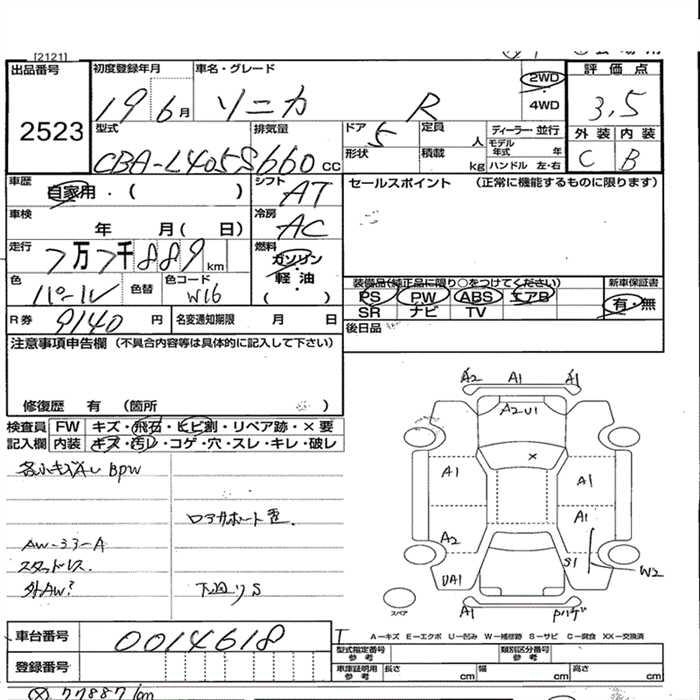 [2121]
出品番号 2523
初度登録年月 19 6月
車名・グレード ソニカ R
2WD
4WD
評価点 3.5
外装 内装
C B
型式 CBA-L405S
排気量 660 cc
ドア 5
定員 人
形状
積載 kg
ディーラー・並行
モデル年式 年
ハンドル 左・右
車歴 自家用・( )
シフト AT
セールスポイント (正常に機能するものに限ります)
車検 年 月( 日)
冷房 AC
走行 7万7千889 km
燃料 ガソリン・軽油 ( )
色 パール 色替 色コード W16
装備品(純正品に限り○をつけてください)
新車保証書
PS PW ABS エアB
有・無
SR ナビ TV
R券 9140 円
名変通知期限 月 日
後日品
注意事項申告欄 (不具合内容等は具体的に記入して下さい)
修復歴 有 (箇所 )
検査員 FW キズ・飛石・ヒビ割・リペア跡・×要
記入欄 内装 キズ・汚レ・コゲ・穴・スレ・キレ・破レ
BPW
AW-33-A
スタッドレス.
外AW? 下廻りS
A2 A1 A1
A2U1
×
A1 A1
A1
A2
S1 W2
UA1
スペア
A1 Pハゲ
車台番号 0014618
登録番号
A−キズ E−エクボ U−凹み W−補修跡 S−サビ C−腐食 XX−交換済
型式指定番号 参考 類別区分番号 参考
車庫証明用 参考 長さ cm 幅 cm 高さ cm
77887km